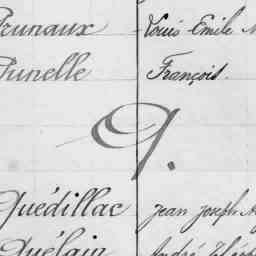 Prunaux Louis Emile
Prunelle François.
Q.
Quédillac Jean Joseph
Quélain André